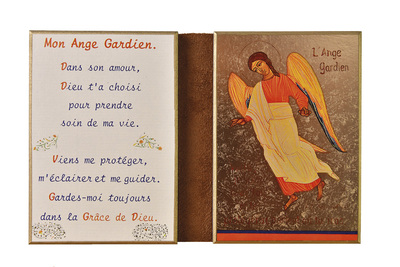 Mon Ange Gardien.
Dans son amour,
Dieu t'a choisi
pour prendre
soin de ma vie.
Viens me protéger,
m'éclairer et me guider.
Gardes-moi toujours
dans la Grâce de Dieu.
L'Ange
gardien